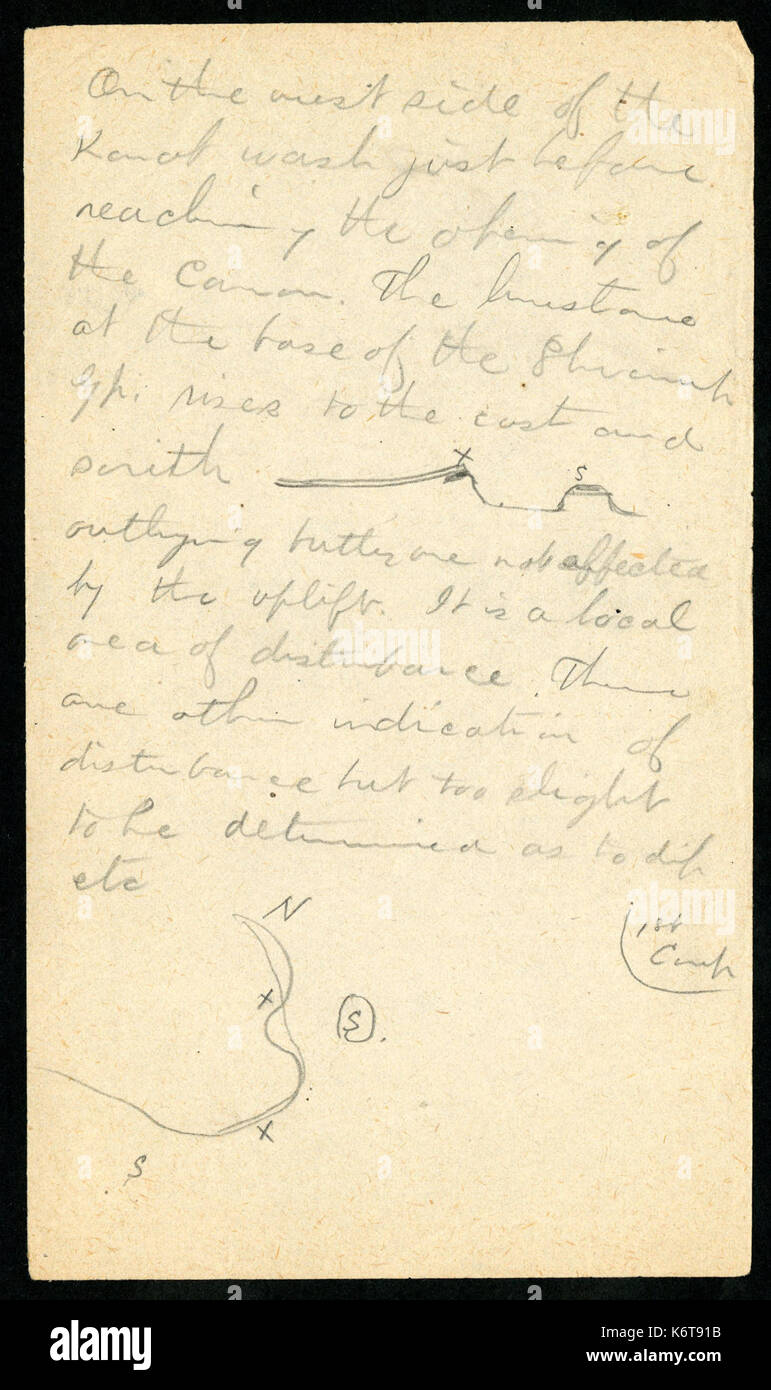 On the west side of the
Kanab wash just before
reaching the opening of
the Canon. The limestone
at the base of the Shinarump
Gp. rises to the east and
south
X
S
outlying buttes are not affected
by the uplift. It is a local
area of disturbance. There
are other indication of
disturbance but too slight
to be determined as to dip
etc
N
1st
Camp
X
S
X
S
alamy
alamy
alamy
Image ID: K6T91B
www.alamy.com